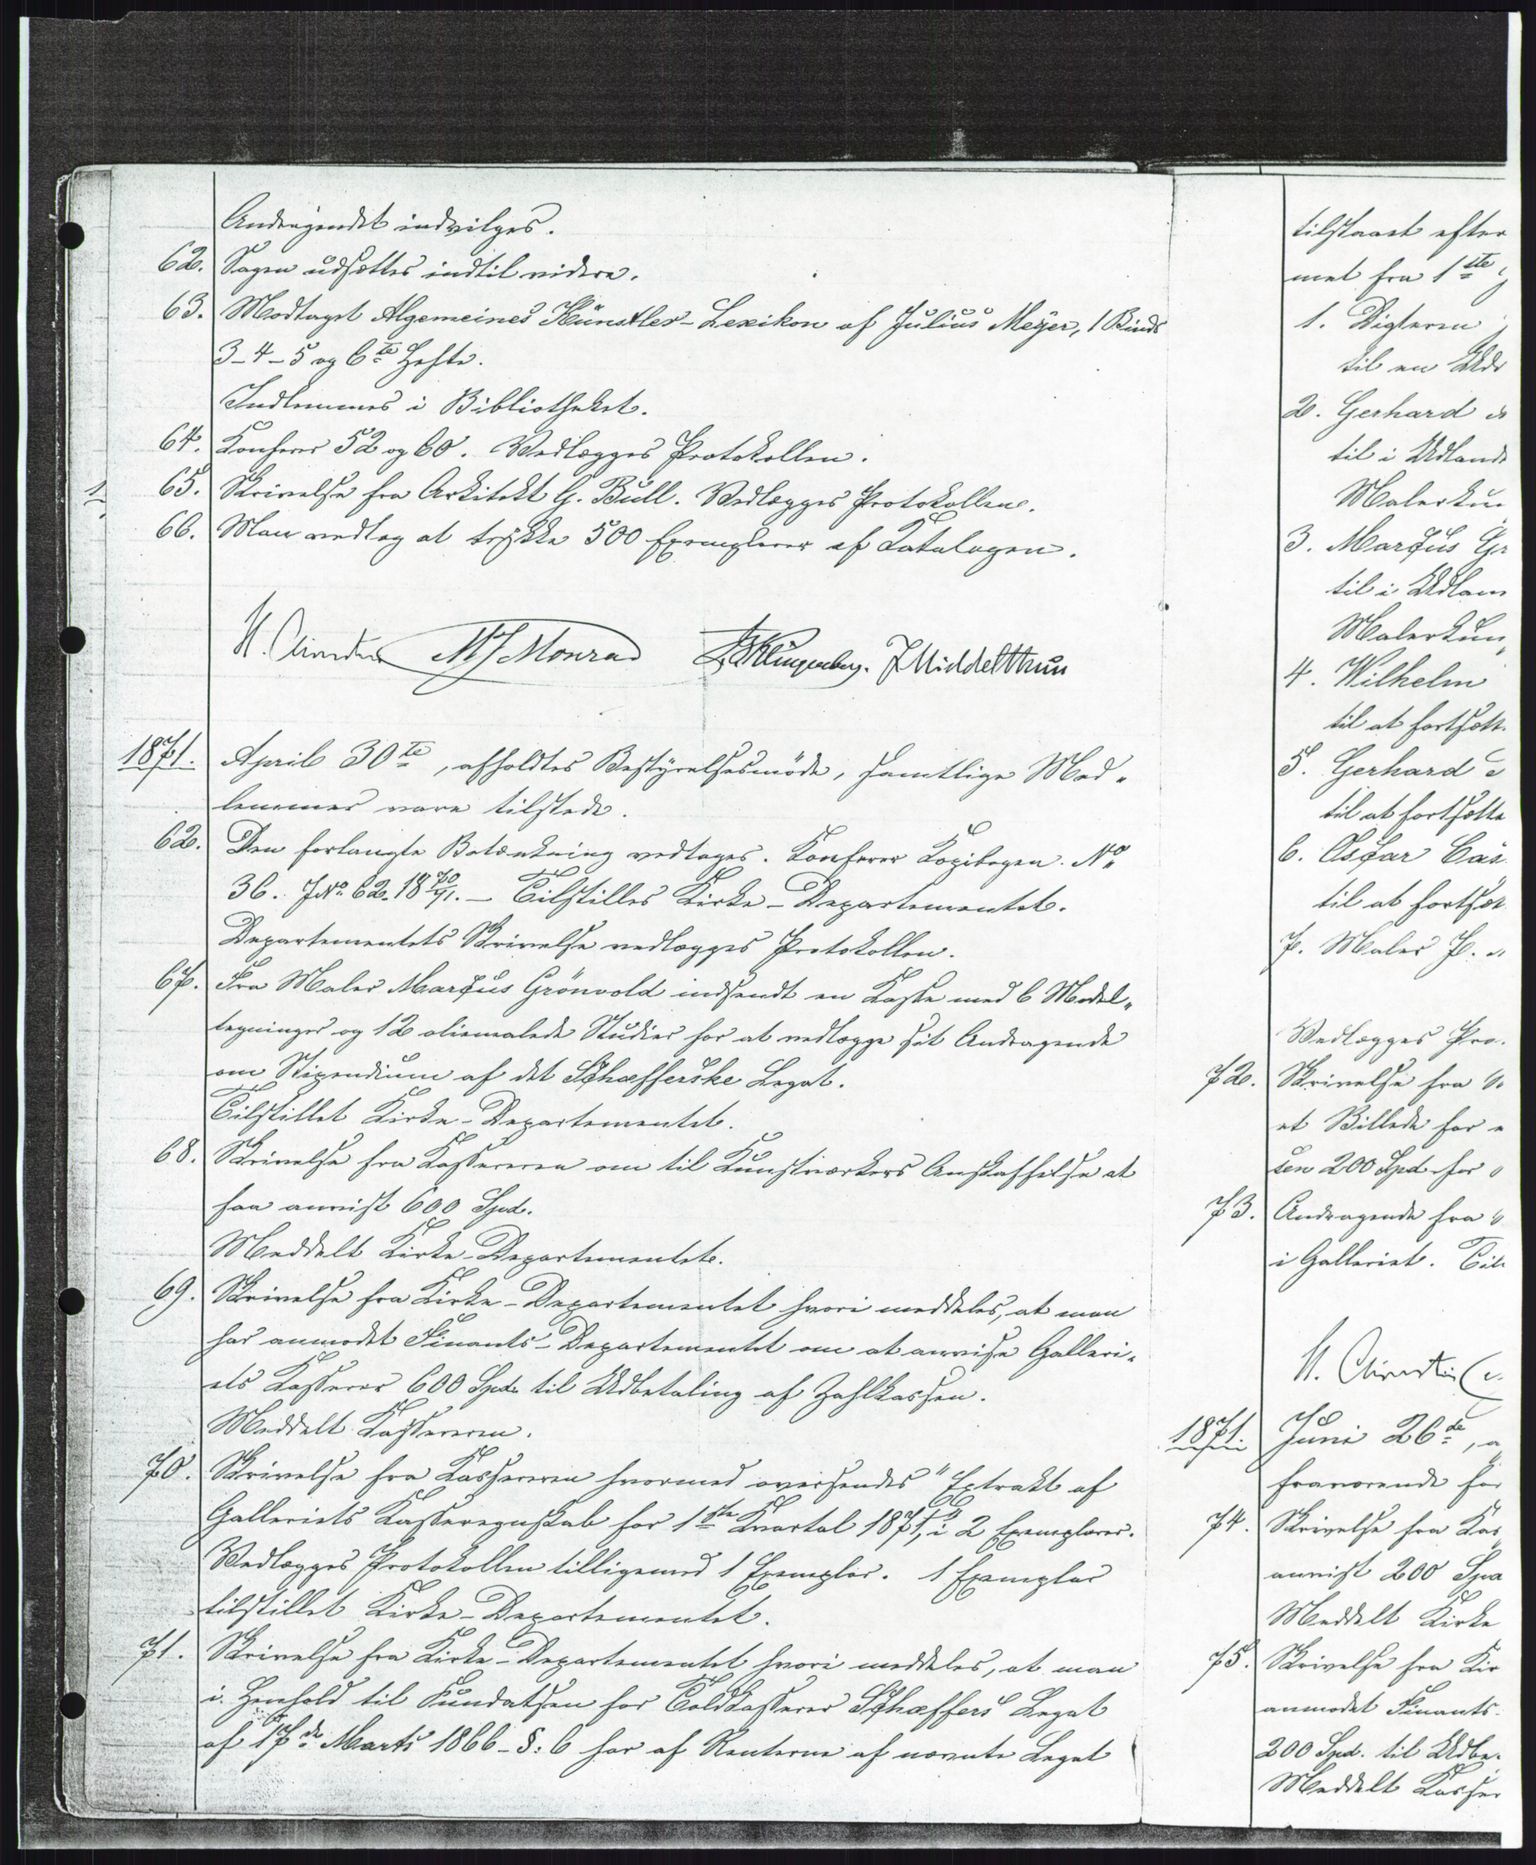 Andragendet indvilges.
62. Sagen udsættes indtil videre.
63. Modtaget Algemeines Künstler-Lexikon af Julius Meyer, 1 Binds
3-4-5 og 6te Hefte.
Indlemmes i Bibliotheket.
64. Konferer 52 og 60. Vedlægges Protokollen.
1
65. Skrivelse fra Arkitekt G. Bull. Vedlægges Protokollen.
66. Man vedtog at trykke 500 Exemplarer af Katalogen.
H. Christie MJMonrad Klingenberg. JMiddelthun
1871. April 30te, afholdtes Bestyrelsesmöde, samtlige Med-
lemmer vare tilstede.
62. Den forlangte Betænkning vedtages. Konferer Kopibogen No
36. JNo 62. 1870/71. – Tilstilles Kirke-Departementet.
Departementets Skrivelse vedlægges Protokollen.
67. Fra Maler Marcus Grönvold indsendt en Kasse med 6 Model-
tegninger og 12 oliemalede Studier for at vedlægge sit Andragende
om Stipendium af det Schæfferske Legat.
Tilstillet Kirke-Departementet.
68. Skrivelse fra Kassereren om til Kunstværkers Anskaffelse at
faa anvist 600 Spd.
Meddelt Kirke-Departementet.
69. Skrivelse fra Kirke-Departementet hvori meddeles, at man
har anmodet Finants-Departementet om at anvise Galleri-
ets Kasserer 600 Spd. til Udbetaling af Zahlkassen.
Meddelt Kassereren.
70. Skrivelse fra Kassereren hvormed oversendes "Extrakt af
Galleriets Kasseregnskab for 1ste Kvartal 1871", i 2 Exemplarer.
Vedlægges Protokollen tilligemed 1 Exemplar. 1 Exemplar
tilstillet Kirke-Departementet.
71. Skrivelse fra Kirke-Departementet hvori meddeles, at man
i Henhold til Fundatsen for Toldkasserer Schæffers Legat
af 17de Marts 1866 - §: 6 har af Renterne af nævnte Legat
tilstaaet efter
met fra 1ste
1. Digteren
til en Ud
2. Gerhard
til i Udland
Malerkun
3. Marcus Gr
til i Udlan
Malerkun
4. Wilhelm
til at fortsætt
5. Gerhard
til at fortsætte
6. Oscar Cas
til at fortsæt
7. Maler P.
Vedlægges Pro
72. Skrivelse fra
et Billede for
sen 200 Spd. for
73. Andragende fra
i Galleriet. Til
H. Christie
1871. Juni 26de, a
fraværende for
74. Skrivelse fra Kas
anvist 200 Spd
Meddelt Kirke
75. Skrivelse fra Kir
anmodet Finants-
200 Spd. til Udbe-
Meddelt Kasser